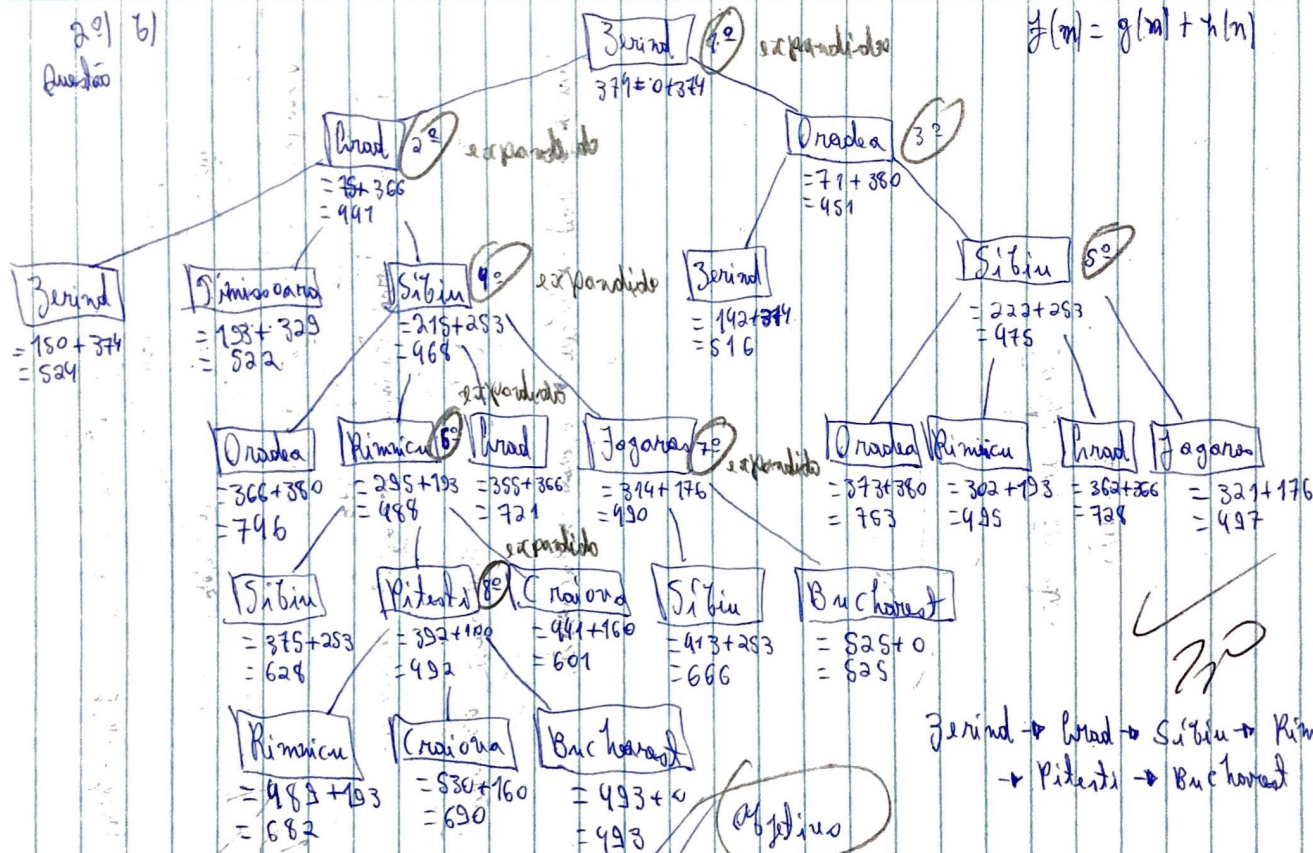 2º) b)
Questão
f(n) = g(n) + h(n)
Zerind 1º
374 = 0+374
Arad 2º
= 75+366
= 441
Oradea 3º
= 71+380
= 451
Zerind
= 150+374
= 524
Timisoara
= 193+329
= 522
Sibiu 4º
= 215+253
= 468
Zerind
= 142+374
= 516
Sibiu 5º
= 222+253
= 475
Oradea
= 366+380
= 746
Rimnicu 6º
= 295+193
= 488
Arad
= 355+366
= 721
Fagaras 7º
= 314+176
= 490
Oradea
= 373+380
= 753
Rimnicu
= 302+193
= 495
Arad
= 362+366
= 728
Fagaras
= 321+176
= 497
Sibiu
= 375+253
= 628
Pitesti 8º
= 392+100
= 492
Craiova
= 441+160
= 601
Sibiu
= 413+253
= 666
Bucharest
= 525+0
= 525
Rimnicu
= 489+193
= 682
Craiova
= 530+160
= 690
Bucharest
= 493+0
= 493
Objetivo
Zerind → Arad → Sibiu → Rim
→ Pitesti → Bucharest